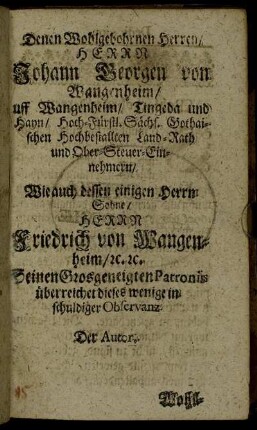 Denen Wohlgebohrnen Herren/
HERRN
Johann Georgen von
Wangenheim/
uff Wangenheim/ Tüngeda und
Hayn/ Hoch-Fürstl. Sächs. Gothai-
schen Hochbestallten Land-Rath
und Ober-Steuer-Ein-
nehmern/
Wie auch dessen einigen Herrn
Sohne/
HERRN
Friedrich von Wangen-
heim/ ꝛc. ꝛc.
Seinen Grosgeneigten Patroniis
überreichet dieses wenige in
schuldiger Observanz
Der Autor.
Wohl-